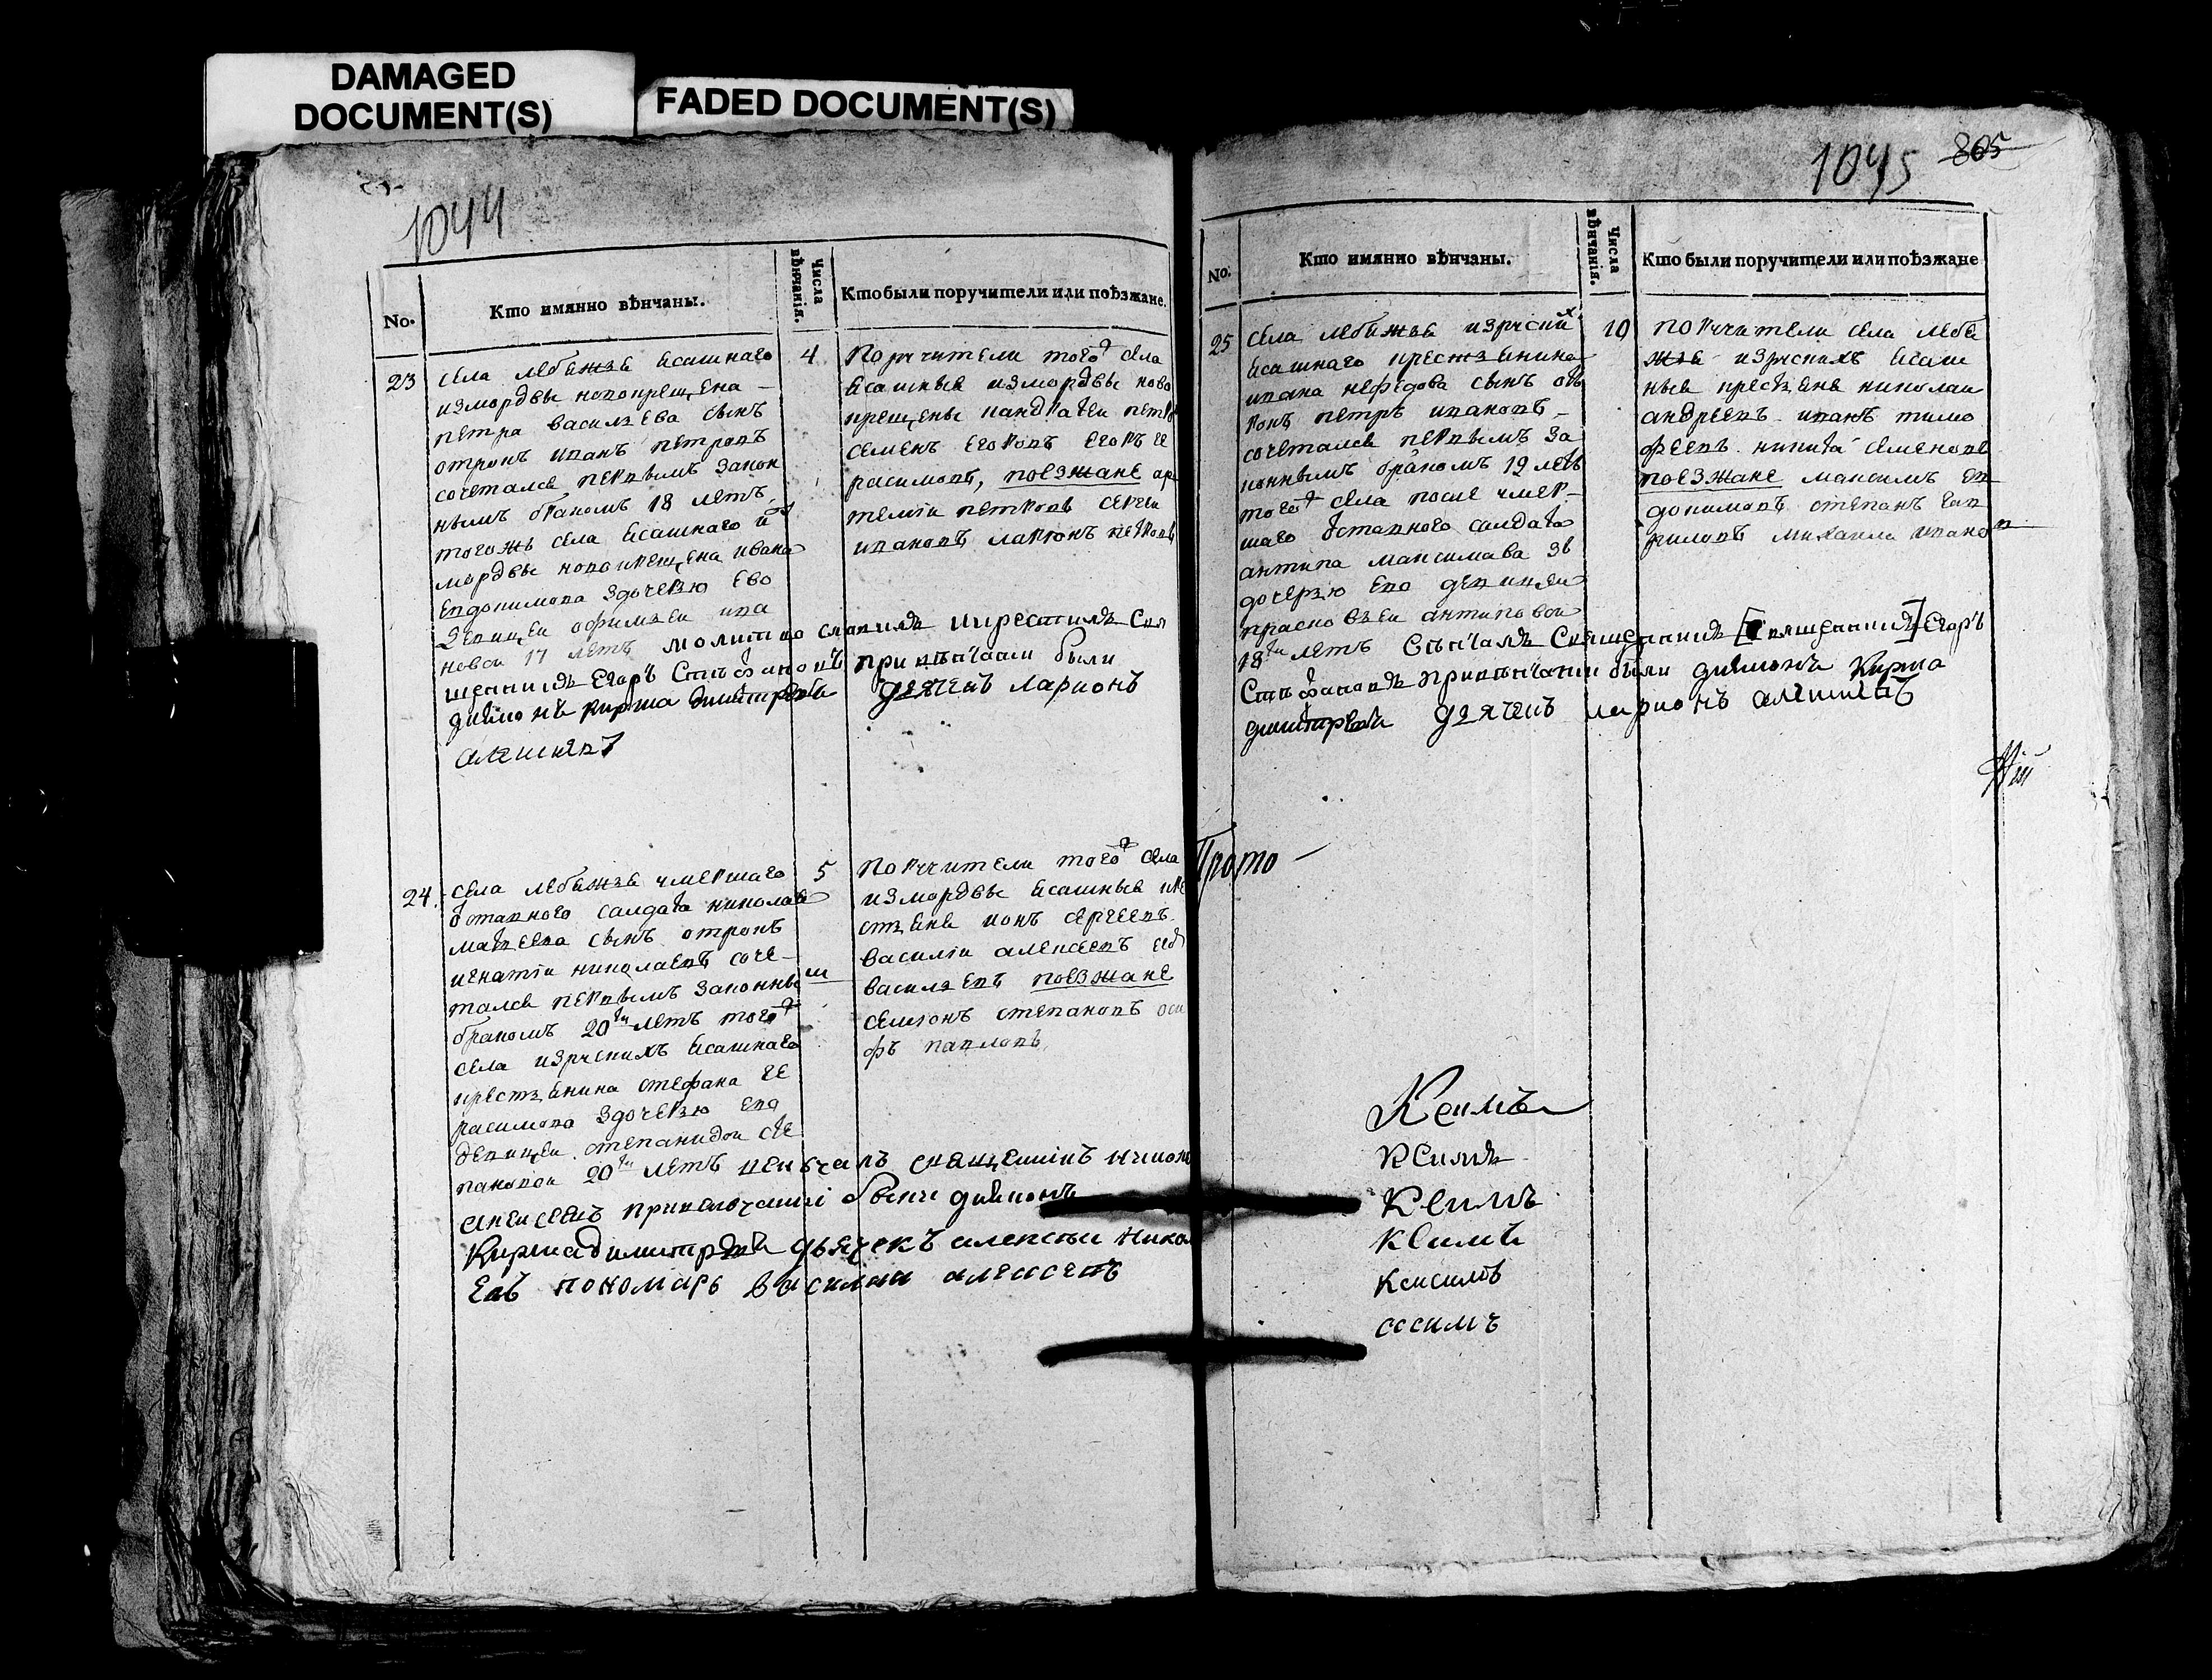 DAMAGED
DOCUMENT(S)
FADED DOCUMENT(S)
1044
No.
Кто имянно вѣнчаны.
Числа
вѣнчанія.
Кто были поручители или поѣзжане.
23
села лебяжья ясашнаго
измордвы новокрещена
петра васильева сынъ
отрокъ иванъ петровъ
сочетался первымъ закон
нымъ бракомъ 18 летъ
тогожъ села ясашнаго из
мордвы новокрещена ивана
евдокимова здочерью ево
девицеи офимьеи ива
новои 17 летъ молитвословилъ икрестилъ Свя
щенникъ Егоръ Стефановъ привѣнчаніи были
диаконъ Кирила димитреевъ дьячекъ ларионъ
алексеевъ
4
Поручители того села
ясашныя измордвы ново
крещены панкратеи петров
семенъ егоровъ егоръ ге
расимовъ, поезжане ар
темiи петровъ сергеи
ивановъ ларионъ петровъ
24.
села лебяжья умершаго
отставного салдата николая
матвеева сынъ отрокъ
игнатiи николаевъ соче-
тался первымъ законны м
бракомъ 20ти летъ того
села изруских ясашнаго
крестьянина стефана ге
расимова здочерью ево
девицеи степанидои сте
пановои 20ти летъ венъчалъ священникъ
алексеевъ привенчаниi были диаконъ
Кирила димитреевъ дьячекъ алексеи Никола
евъ пономарь василии алексеевъ
5
поручители того села
измордвы ясашныя кре
стьяне ионъ сергеевъ
василiи алексеевъ
васильевъ поезжане
семионъ степановъ оси
фъ павловъ
1045 805
No.
Кто имянно вѣнчаны.
Числа
вѣнчанія.
Кто были поручители или поѣзжане
25
Села лебяжья изруских
ясашнаго крестьянина
ивана нефедова сынъ от
рокъ петръ ивановъ -
сочетался первымъ за
коннымъ бракомъ 19 летъ
того села после умер-
шаго отставного салдата
антипа максимава з
дочерью ево девицеи
прасковьеи антиповои
18ти летъ Вѣнчалъ Священникъ [Священникъ] Егоръ
Стефановъ привѣнчаніи были диаконъ Кирила
димитреевъ дьячекъ ларионъ алексеевъ
10
поручители села лебя
жья изрускихъ ясаш
ныя крестьяне николаи
андреевъ иванъ тимо
феевъ никита семеновъ
поезжане максимъ ев
докимовъ степанъ гав
риловъ михаила иванов
Прото -